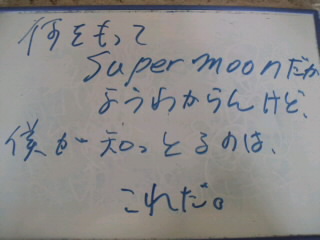 何をもって
Super moonだか
ようわからんけど、
僕が知っとるのは、
これだ。